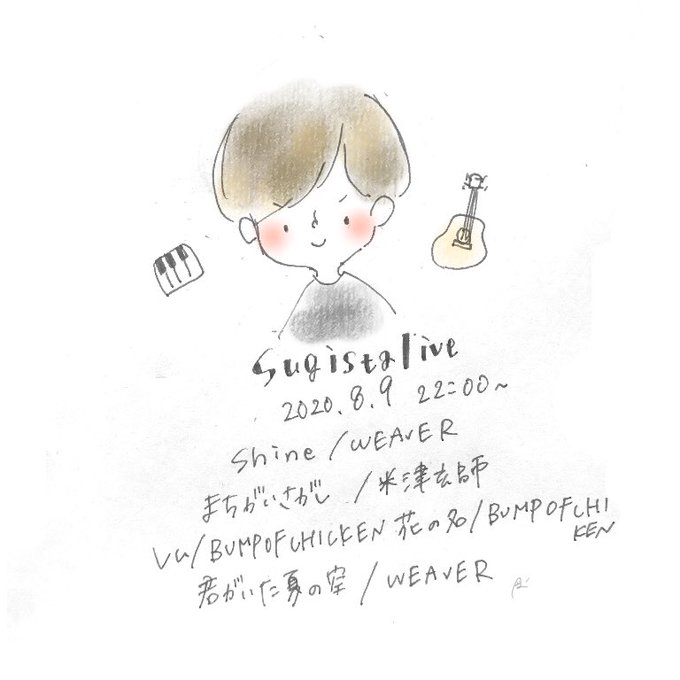 sugistalive
2020.8.9 22:00~
Shine/WEAVER
まちがいさがし/米津玄師
BUMPOFCHICKEN 花の名/BUMPOFCHI
KEN
君がいた夏の空/WEAVER